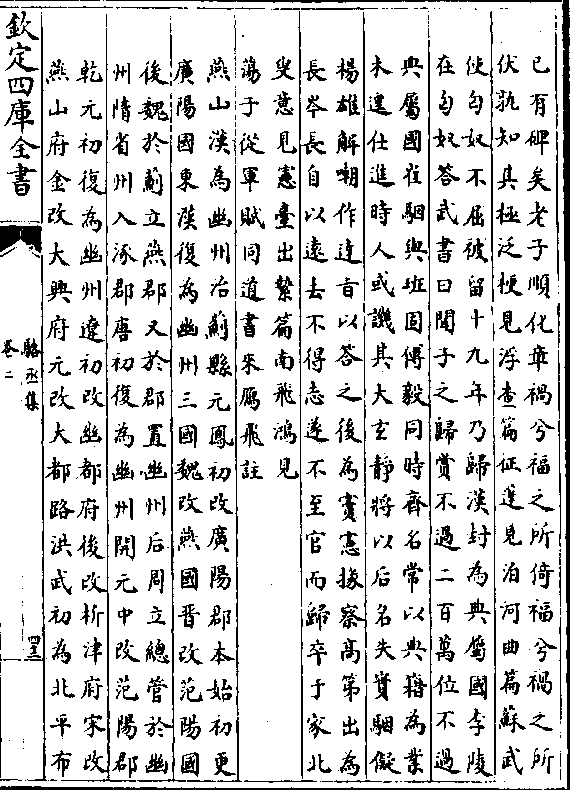 已有碑矣老子順化章禍兮福之所倚福兮禍之所
伏孰知其極泛梗見浮查篇征蓬見泊河曲篇蘇武
使匈奴不屈被留十九年乃歸漢封為典屬國李陵
在匈奴答武書曰聞子之歸賞不過二百萬位不過
典屬國崔駰與班固傅毅同時齊名常以典籍為業
未遑仕進時人或譏其大玄靜將以后名失實駰儗
楊雄解嘲作達旨以答之後為竇憲掾察高第出為
長岑長自以遠去不得志遂不至官而歸卒于家北
叟意見憲臺出縶篇南飛鴻見
蕩子從軍賦同道書來鴈飛註
燕山漢為幽州治薊縣元鳳初改廣陽郡本始初更
廣陽國東漢復為幽州三國魏改燕國晉改范陽國
後魏於薊立燕郡又於郡置幽州后周立總管於幽
州隋省州入涿郡唐初復為幽州開元中改范陽郡
乾元初復為幽州遼初改幽都府後改析津府宋改
燕山府金改大興府元改大都路洪武初為北平布
欽定四庫全書
駱丞集
卷二